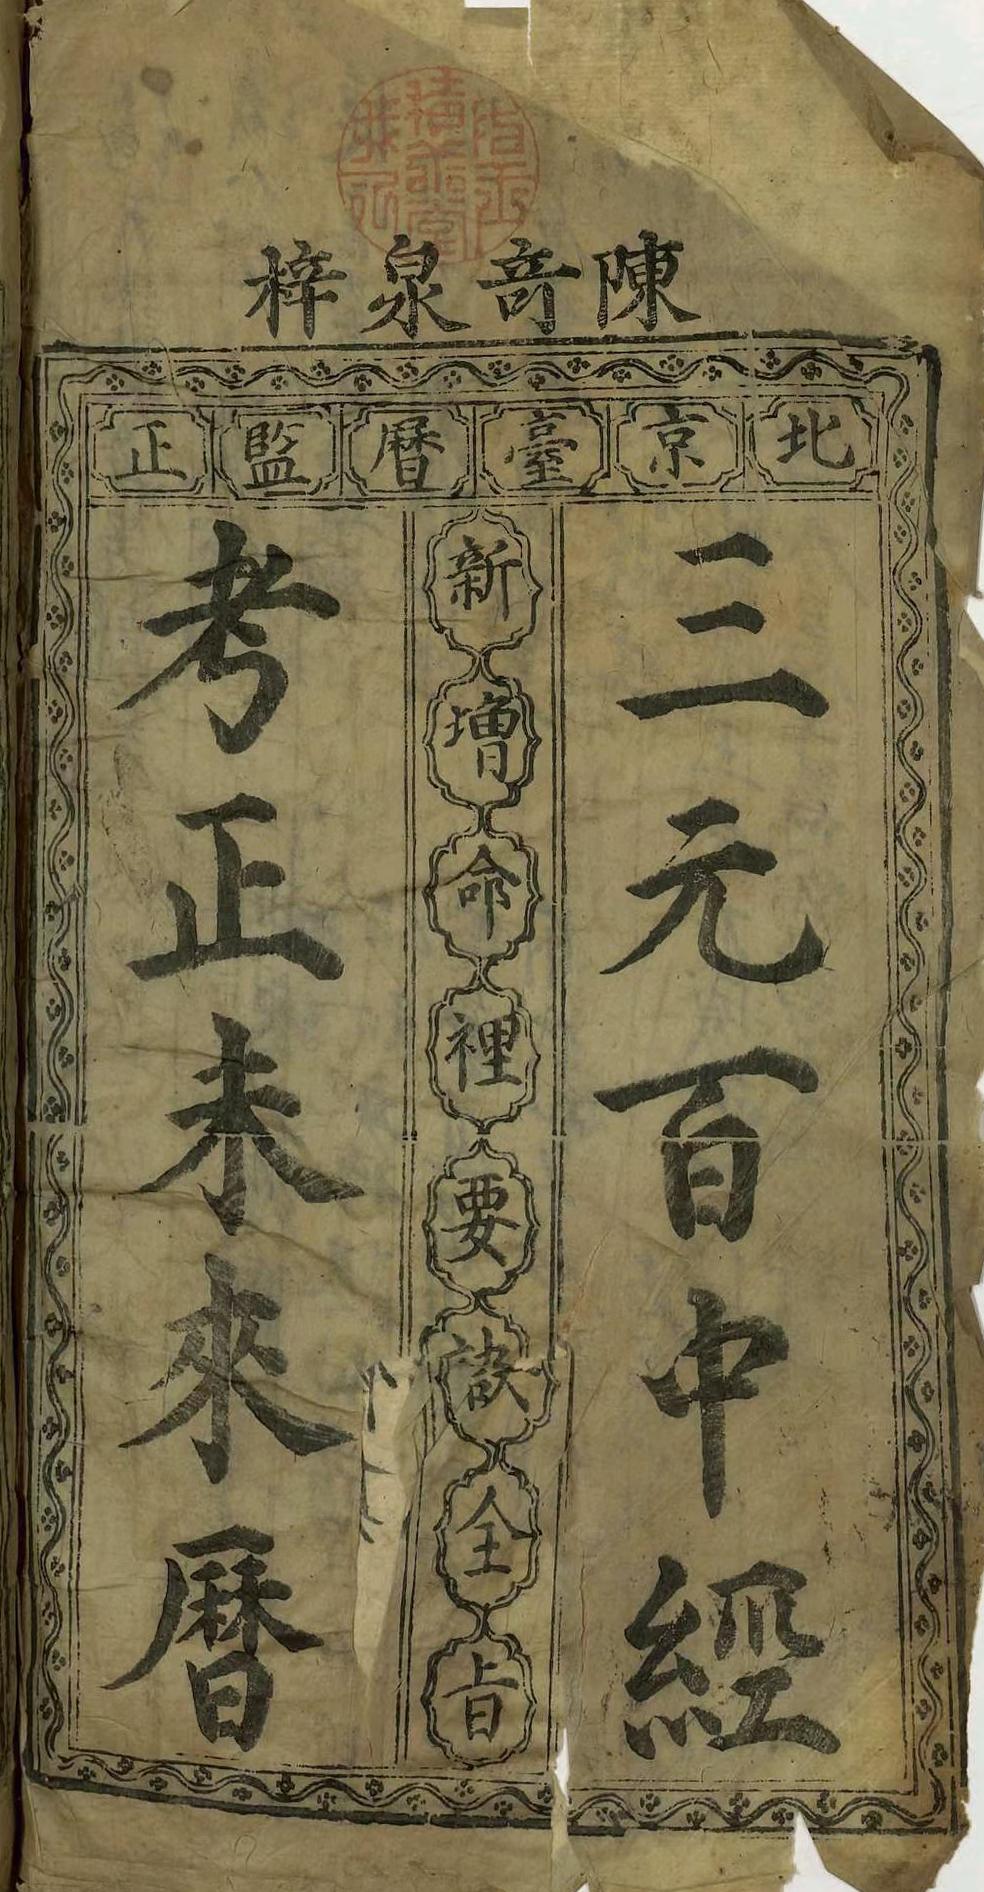 陳竒泉梓
北京臺曆監正
三元百中經
新增命裡要訣全旨
考正未來曆